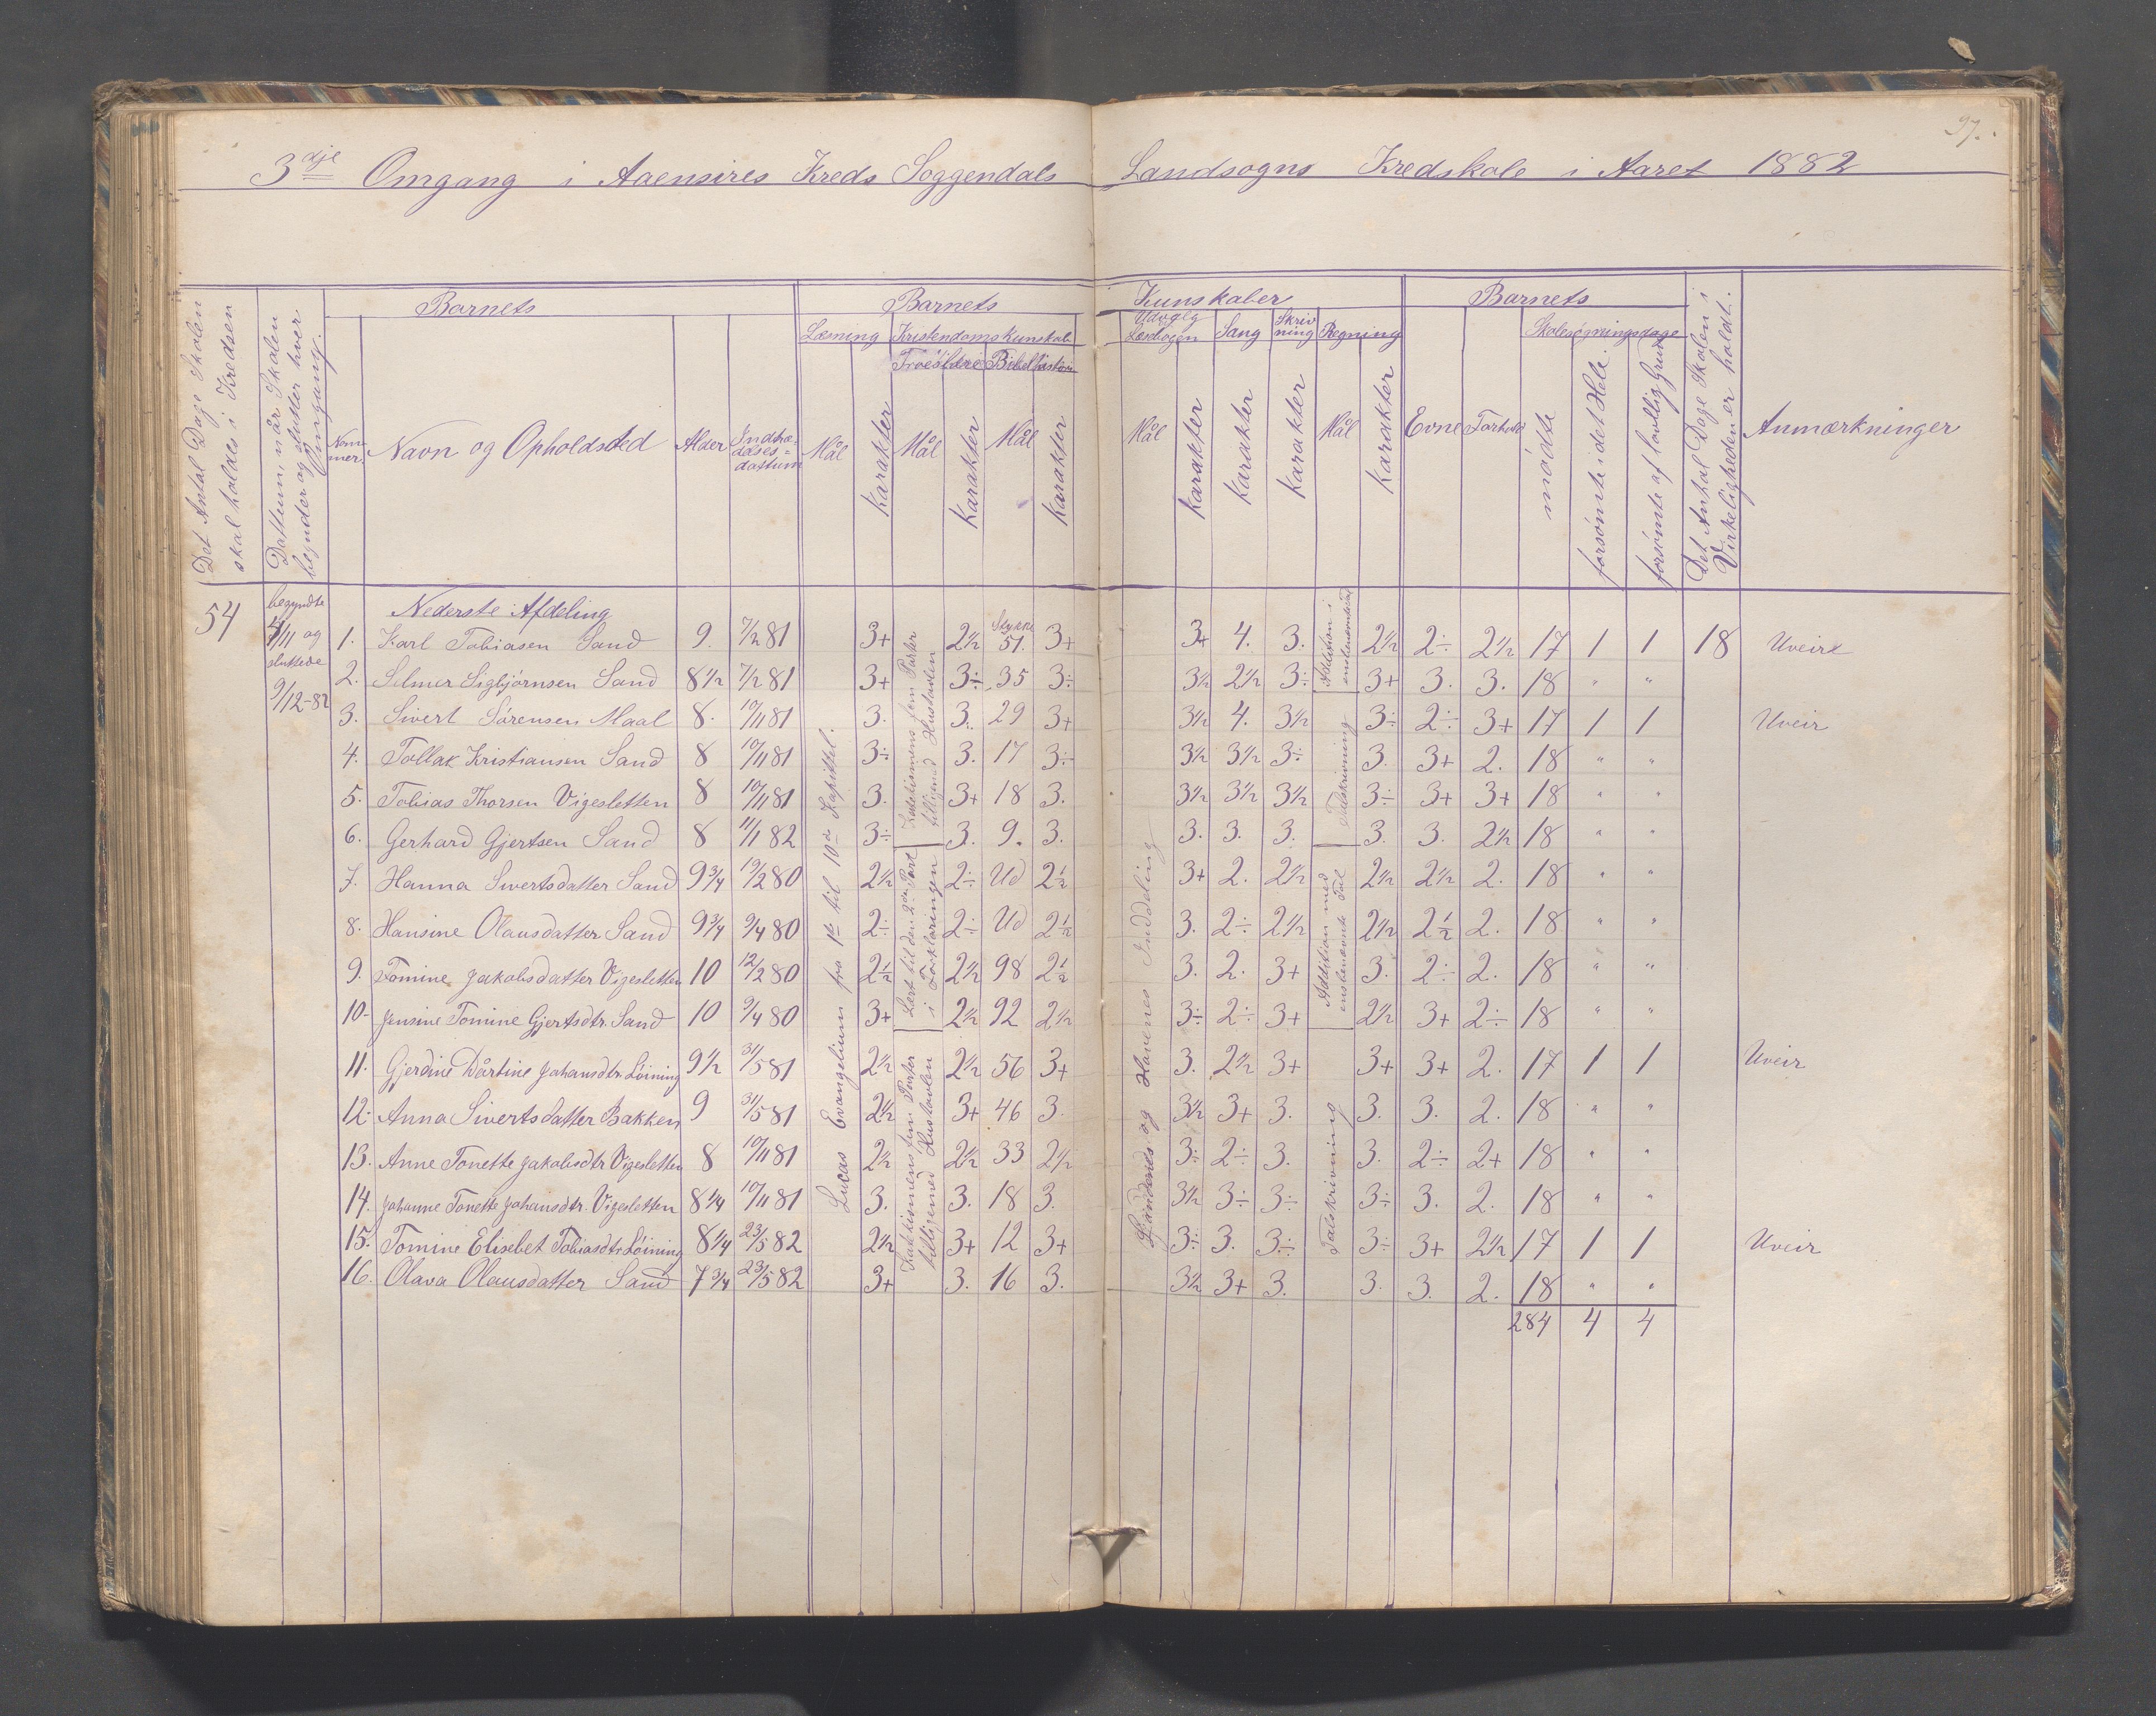 97.
3dje Omgang i Aaensires Kreds Soggendals Landsogns Kredskole i Aaret 1882
Det Antal Dage Skolen skal holdes i Kredsen
Dattum, når Skolen begynder og slutter hver Omgang.
Barnets
Nommer.
Navn og Opholdsted
Alder
Indtrædelses=dattum
Barnets Kunskaber
Læsning
Mål
Karakter
Kristendomskunskab
Troeslære
Mål
Karakter
Bibelhistorie
Mål
Karakter
Udvalg Læsebogen
Mål
Karakter
Sang
Karakter
Skrivning
Karakter
Regning
Mål
Karakter
Barnets
Evne
Forhold
Skolesøgningsdage
mødte
forsømte i det Hele.
forsømte af lovlig Grund
Det Anhal Dage Skolen i Virkeligheden er holdt.
Anmærkninger
54
begyndte
/11 og
sluttede
9/12-82
Nederste Afdeling
Stykke
1. Karl Tobiasen Sand 9. 7/2 81 3+ 2½ 51. 3+ 3+ 4. 3. 2½ 2÷ 2½ 17 1 1 18 Uveir
2. Selmer Sigbjørnsen Sand 8½ 7/2 81 3+ 3÷ 35 3÷ 3½ 2½ 3÷ 3+ 3. 3. 18 " "
3. Sivert Sørensen Maal 8. 10/11 81 3. 3. 29 3+ 3½ 4. 3½ 3÷ 2÷ 3+ 17 1 1 Uveir
4. Tollak Kristiansen Sand 8 10/11 81 3÷ 3. 17 3÷ 3½ 3½ 3÷ 3. 3+ 2. 18 " "
5. Tobias Thorsen Vigesletten 8 10/11 81 3. 3+ 18 3. 3½ 3½ 3½ 3÷ 3+ 3+ 18 " "
6. Gerhard Gjertsen Sand 8 11/1 82 3÷ 3. 9. 3. 3. 3. 3. 3. 3. 2½ 18 " "
7. Hanna Sivertsdatter Sand 9¾ 19/2 80 2½ 2÷ Ud 2½ 3+ 2. 2½ 2½ 2½ 2. 18 " "
8. Hansine Olausdatter Sand 9¾ 9/4 80 2÷ 2÷ Ud 2½ 3. 2÷ 2½ 2½ 2½ 2. 18 " "
9. Tomine Jakobsdatter Vigesletten 10 12/2 80 2½ 2½ 98 2½ 3. 2. 3+ 3. 2÷ 2. 18 " "
10. Jensine Tomine Gjertsdtr. Sand 10 9/4 80 3+ 2½ 92 2½ 3÷ 2÷ 3+ 2½ 3+ 2÷ 18 " "
11. Gjerdine Dårtine Johansdtr. Løining 9½ 31/5 81 2½ 2½ 56 3+ 3. 2½ 3+ 3+ 3+ 2. 17 1 1 Uveir
12. Anna Sivertsdatter Bakken 9 31/5 81 2½ 3+ 46 3. 3½ 3+ 3. 3. 3. 2. 18 " "
13. Anne Tonette Jakobsdtr. Vigesletten 8 10/11 81 2½ 2½ 33 2½ 3÷ 2÷ 3. 3. 2÷ 2+ 18 " "
14. Johanne Tonette Johansdtr. Vigesletten 8¼ 10/11 81 3. 3. 18 3. 3½ 3÷ 3÷ 3÷ 3. 2. 18 " "
15. Tomine Elisebet Tobiasdtr. Løining 8¼ 23/5 82 2½ 3+ 12 3+ 3÷ 3. 3÷ 3÷ 3+ 2½ 17 1 1 Uveir
16. Olava Olausdatter Sand 7¾ 23/5 82 3+ 3. 16 3. 3½ 3+ 3. 3. 3. 2. 18 " "
284 4 4
Lucas Evangelium fra 1te til 10de Kapittel.
Katekismens fem Parter tilligemed Hustavlen
Læst til den 2den Part i Forklaringen
Katekismens fem Parter tilligemed Hustavlen
Ljandenes og Havenes Inddeling
Addition i
Talskrivning
Addition med ensbenævnte Tal
Talskrivning